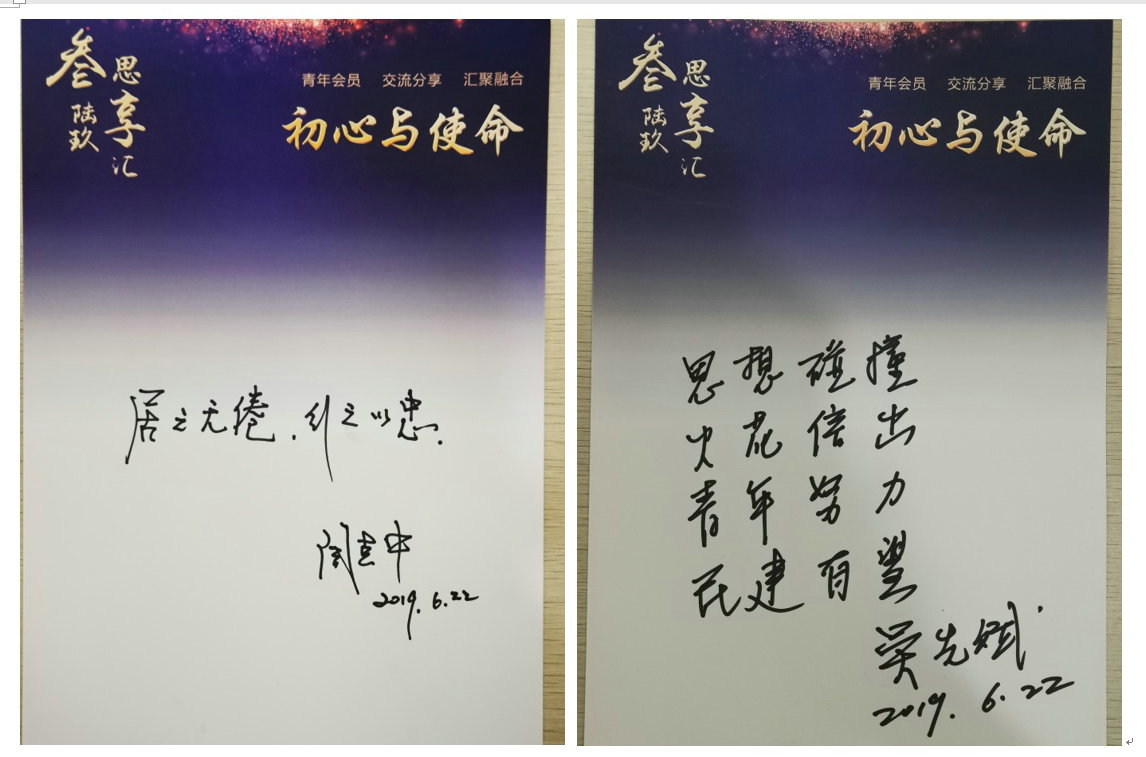 叁思享汇
陆玖
青年会员 交流分享 汇聚融合
初心与使命
居之无倦，行之以忠．
2019.6.22
叁思享汇
陆玖
青年会员 交流分享 汇聚融合
初心与使命
思想碰撞
火花倍出
青年努力
民建有望
吴先斌
2019.6.22